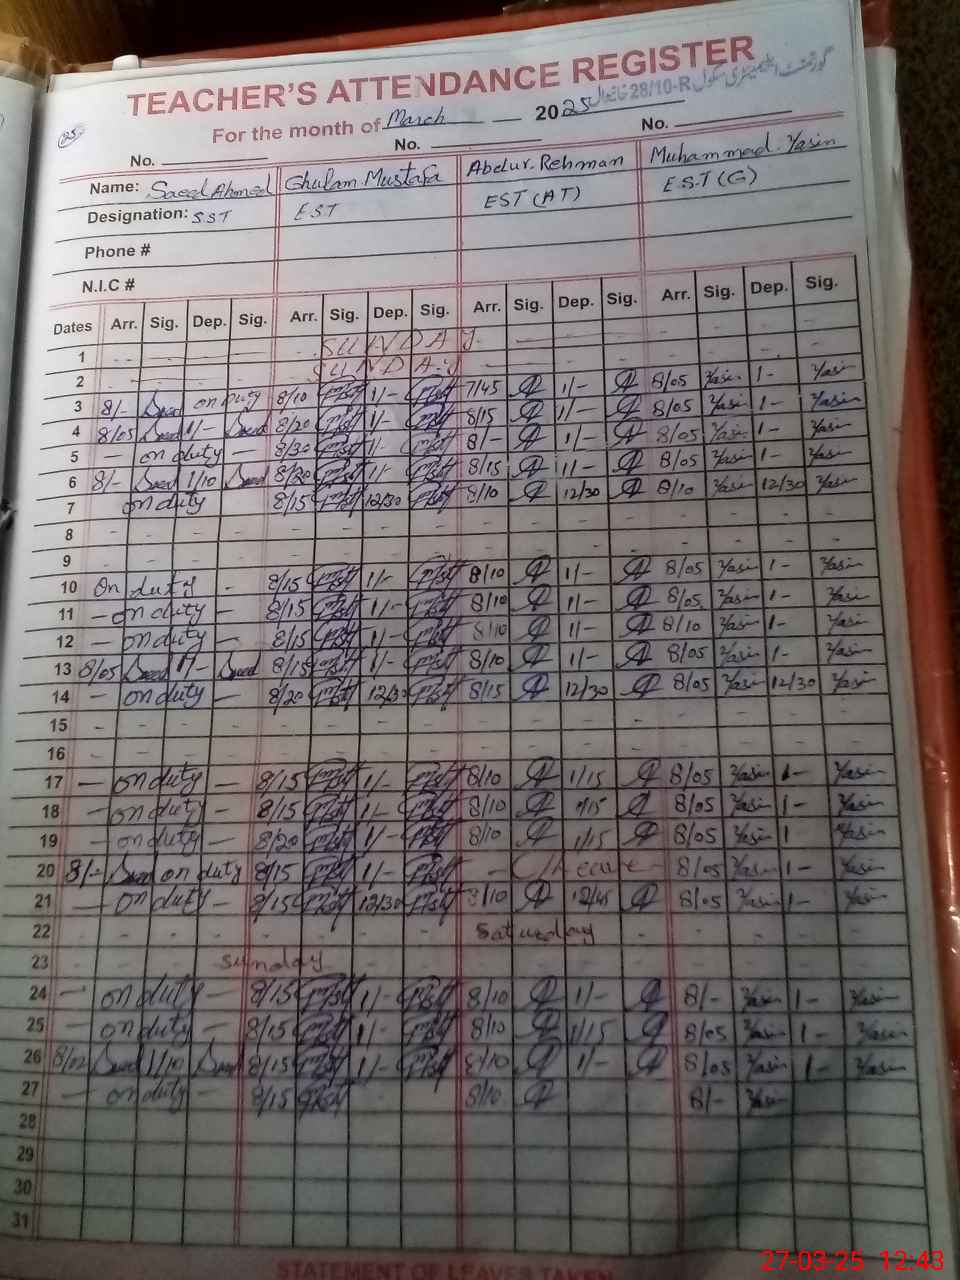 TEACHER'S ATTENDANCE REGISTER
گورنمنٹ ایلیمنٹری سکول 28/10-R خانیوال
25
For the month of March 2025
No. No. No.
Name: Saeed Ahmed Ghulam Mustafa Abdur. Rehman Muhammad. Yasin
Designation: SST EST EST (AT) E.S.T (G)
Phone #
N.I.C #
Dates Arr. Sig. Dep. Sig. Arr. Sig. Dep. Sig. Arr. Sig. Dep. Sig. Arr. Sig. Dep. Sig.
1 SUNDAY
2 SUNDAY
3 8/- Saeed on duty 8/10 1/- 7/45 1/- 8/05 Yasin 1- Yasin
4 8/05 Saeed 1/- Saeed 8/20 1/- 8/15 1/- 8/05 Yasin 1- Yasin
5 - on duty - 8/30 1/- 8/- 1/- 8/05 Yasin 1- Yasin
6 8/- Saeed 1/10 Saeed 8/20 1/- 8/15 1/- 8/05 Yasin 1- Yasin
7 on duty 8/15 12/30 8/10 12/30 8/10 Yasin 12/30 Yasin
8
9
10 On duty - 8/15 1/- 8/10 1/- 8/05 Yasin 1- Yasin
11 - on duty - 8/15 1/- 8/10 1/- 8/05 Yasin 1- Yasin
12 - on duty - 8/15 1/- 8/10 1/- 8/10 Yasin 1- Yasin
13 8/05 Saeed 1/- Saeed 8/15 1/- 8/10 1/- 8/05 Yasin 1- Yasin
14 - on duty - 8/20 12/30 8/15 12/30 8/05 Yasin 12/30 Yasin
15
16
17 - on duty - 8/15 1/- 8/10 1/15 8/05 Yasin 1- Yasin
18 - on duty - 8/15 1/- 8/10 1/15 8/05 Yasin 1- Yasin
19 - on duty - 8/20 1/- 8/10 1/15 8/05 Yasin 1- Yasin
20 8/- Saeed on duty 8/15 1/- 8/05 Yasin 1- Yasin
21 - on duty - 8/15 12/30 8/10 12/45 8/05 Yasin 1- Yasin
22 Saturday
23 Sunday
24 - on duty - 8/15 1/- 8/10 1/- 8/- Yasin 1- Yasin
25 - on duty - 8/15 1/- 8/10 1/15 8/05 Yasin 1- Yasin
26 8/02 Saeed 1/10 Saeed 8/15 1/- 8/10 1/- 8/05 Yasin 1- Yasin
27 - on duty - 8/15 8/10 8/- Yasin
28
29
30
31
STATEMENT OF LEAVES TAKEN
27-03-25 12:43